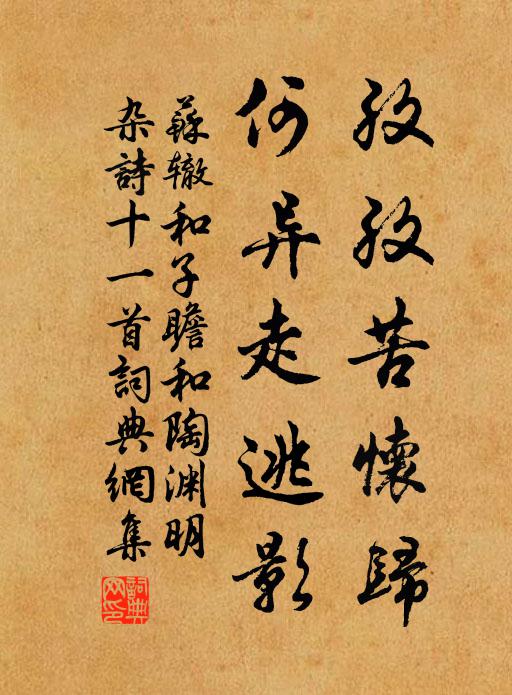 孜孜苦懷歸
何异走逃影
蘇辙和子瞻和陶渊明
杂詩十一首詞典網集
詞典网印